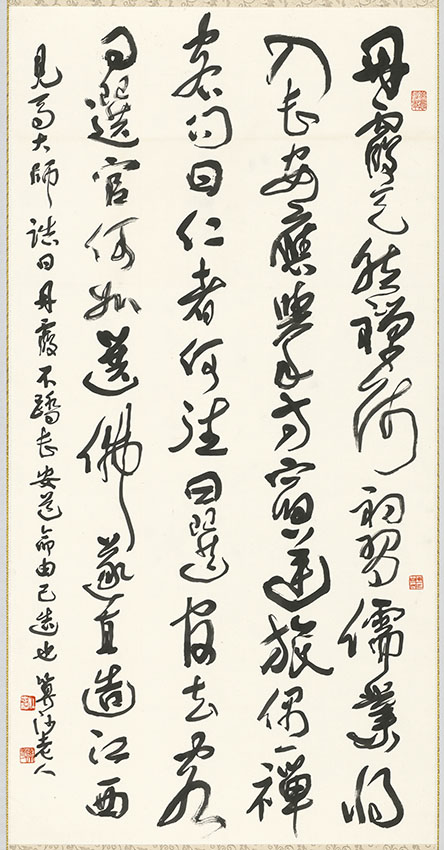 丹霞天然禪師初習儒業將
入長安應舉方寓逆旅偶一禪
客問曰仁者何往曰選官去客
曰選官何如選佛遂直造江西
見馬大師誌曰丹霞不踏長安道命由己造也算沙老人